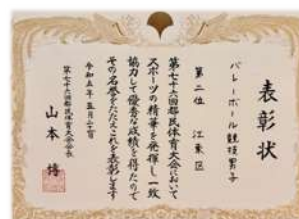 表彰状
バレーボール競技男子
第二位　江東区
第七十六回都民体育大会において
スポーツの精華を発揮し一致
協力して優秀な成績を得たので
その名誉をたたえこれを表彰します
令和五年五月二十一日
第七十六回都民体育大会会長
山本博